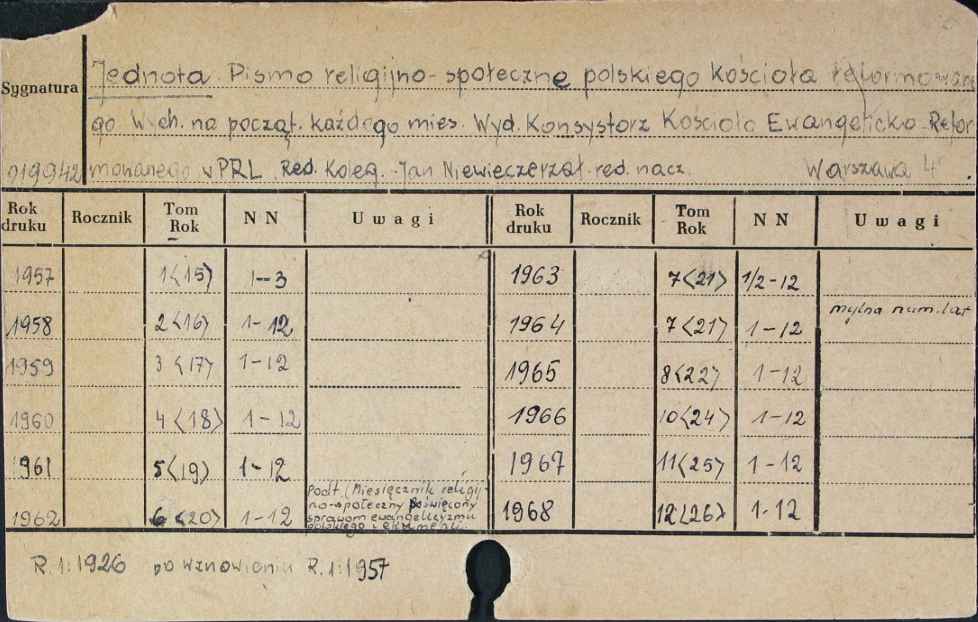 Sygnatura
Jednota. Pismo religijno-społeczne polskiego Kościoła reformowane
go. Wych. na począt. każdego mies. Wyd. Konsystorz Kościoła Ewangelicko-Refor
019942 mowanego w PRL. Red. Koleg. Jan Niewieczerzał red. nacz. Warszawa 4
Rok druku Rocznik Tom Rok N N Uwagi Rok druku Rocznik Tom Rok N N Uwagi
1957 1<15> 1-3 1963 7<21> 1/2-12
1958 2<16> 1-12 1964 7<21> 1-12 mylna num. lat
1959 3<17> 1-12 1965 8<22> 1-12
1960 4<18> 1-12 1966 10<24> 1-12
1961 5<19> 1-12 1967 11<25> 1-12
1962 6<20> 1-12 Podt. (Miesięcznik religij
no-społeczny poświęcony
sprawom ewangelicyzmu
polskiego i ekumenii. 1968 12<26> 1-12
R.1:1926 po wznowieniu R.1:1957